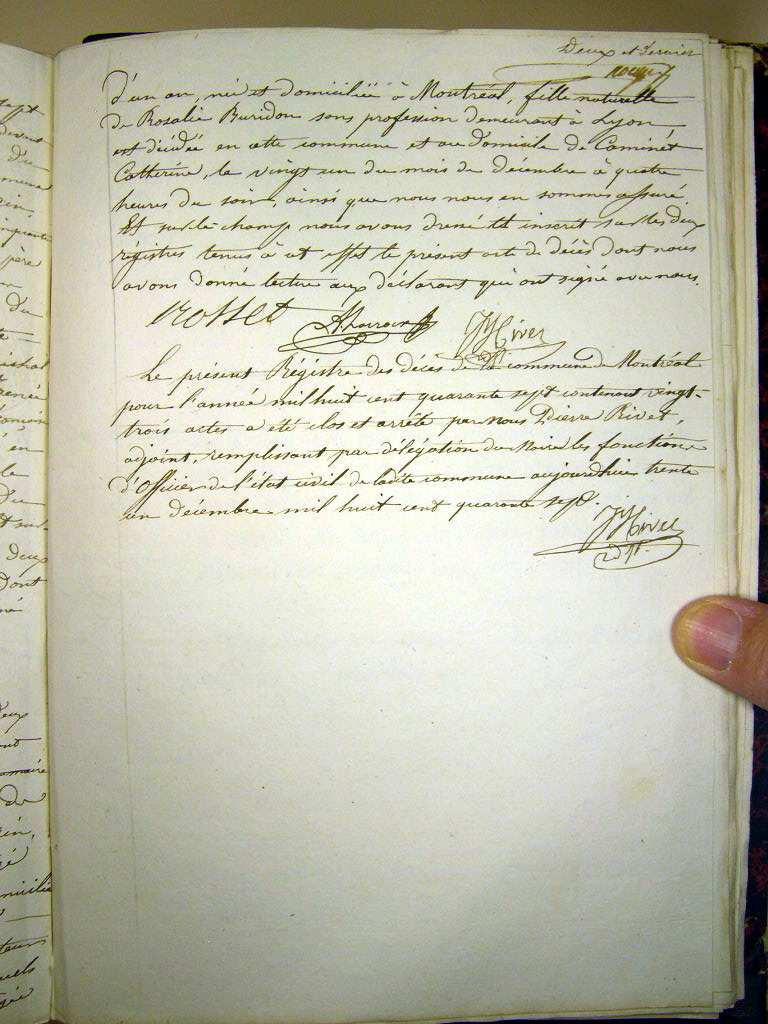 Deux et dernier
d'un an, née et domiciliée à Montréal, fille naturelle
de Rosalie Buridon sans profession demeurant à Lyon,
est décédée en cette commune et au domicile de Caminet
Catherine, le vingt un du mois de décembre à quatre
heures du soir, ainsi que nous nous en sommes assuré.
Et sur-le-champ nous avons dressé et inscrit sur les deux
régistres tenus à cet effet le présent acte de décès dont nous
avons donné lecture aux déclarant qui ont signé avec nous.
Le présent Régistre des décès de la commune de Montréal
pour l'année mil huit cent quarante sept contenant vingt-
trois actes a été clos et arrêté par nous Pierre Rivet,
adjoint, remplissant par délégation du Maire les fonctions
d'Officier de l'état civil de ladite commune aujourdhui trente
un décembre mil huit cent quarante sept.
adjt.
sept
Du
père
en
du
en
le
Du
deux
Dont
du